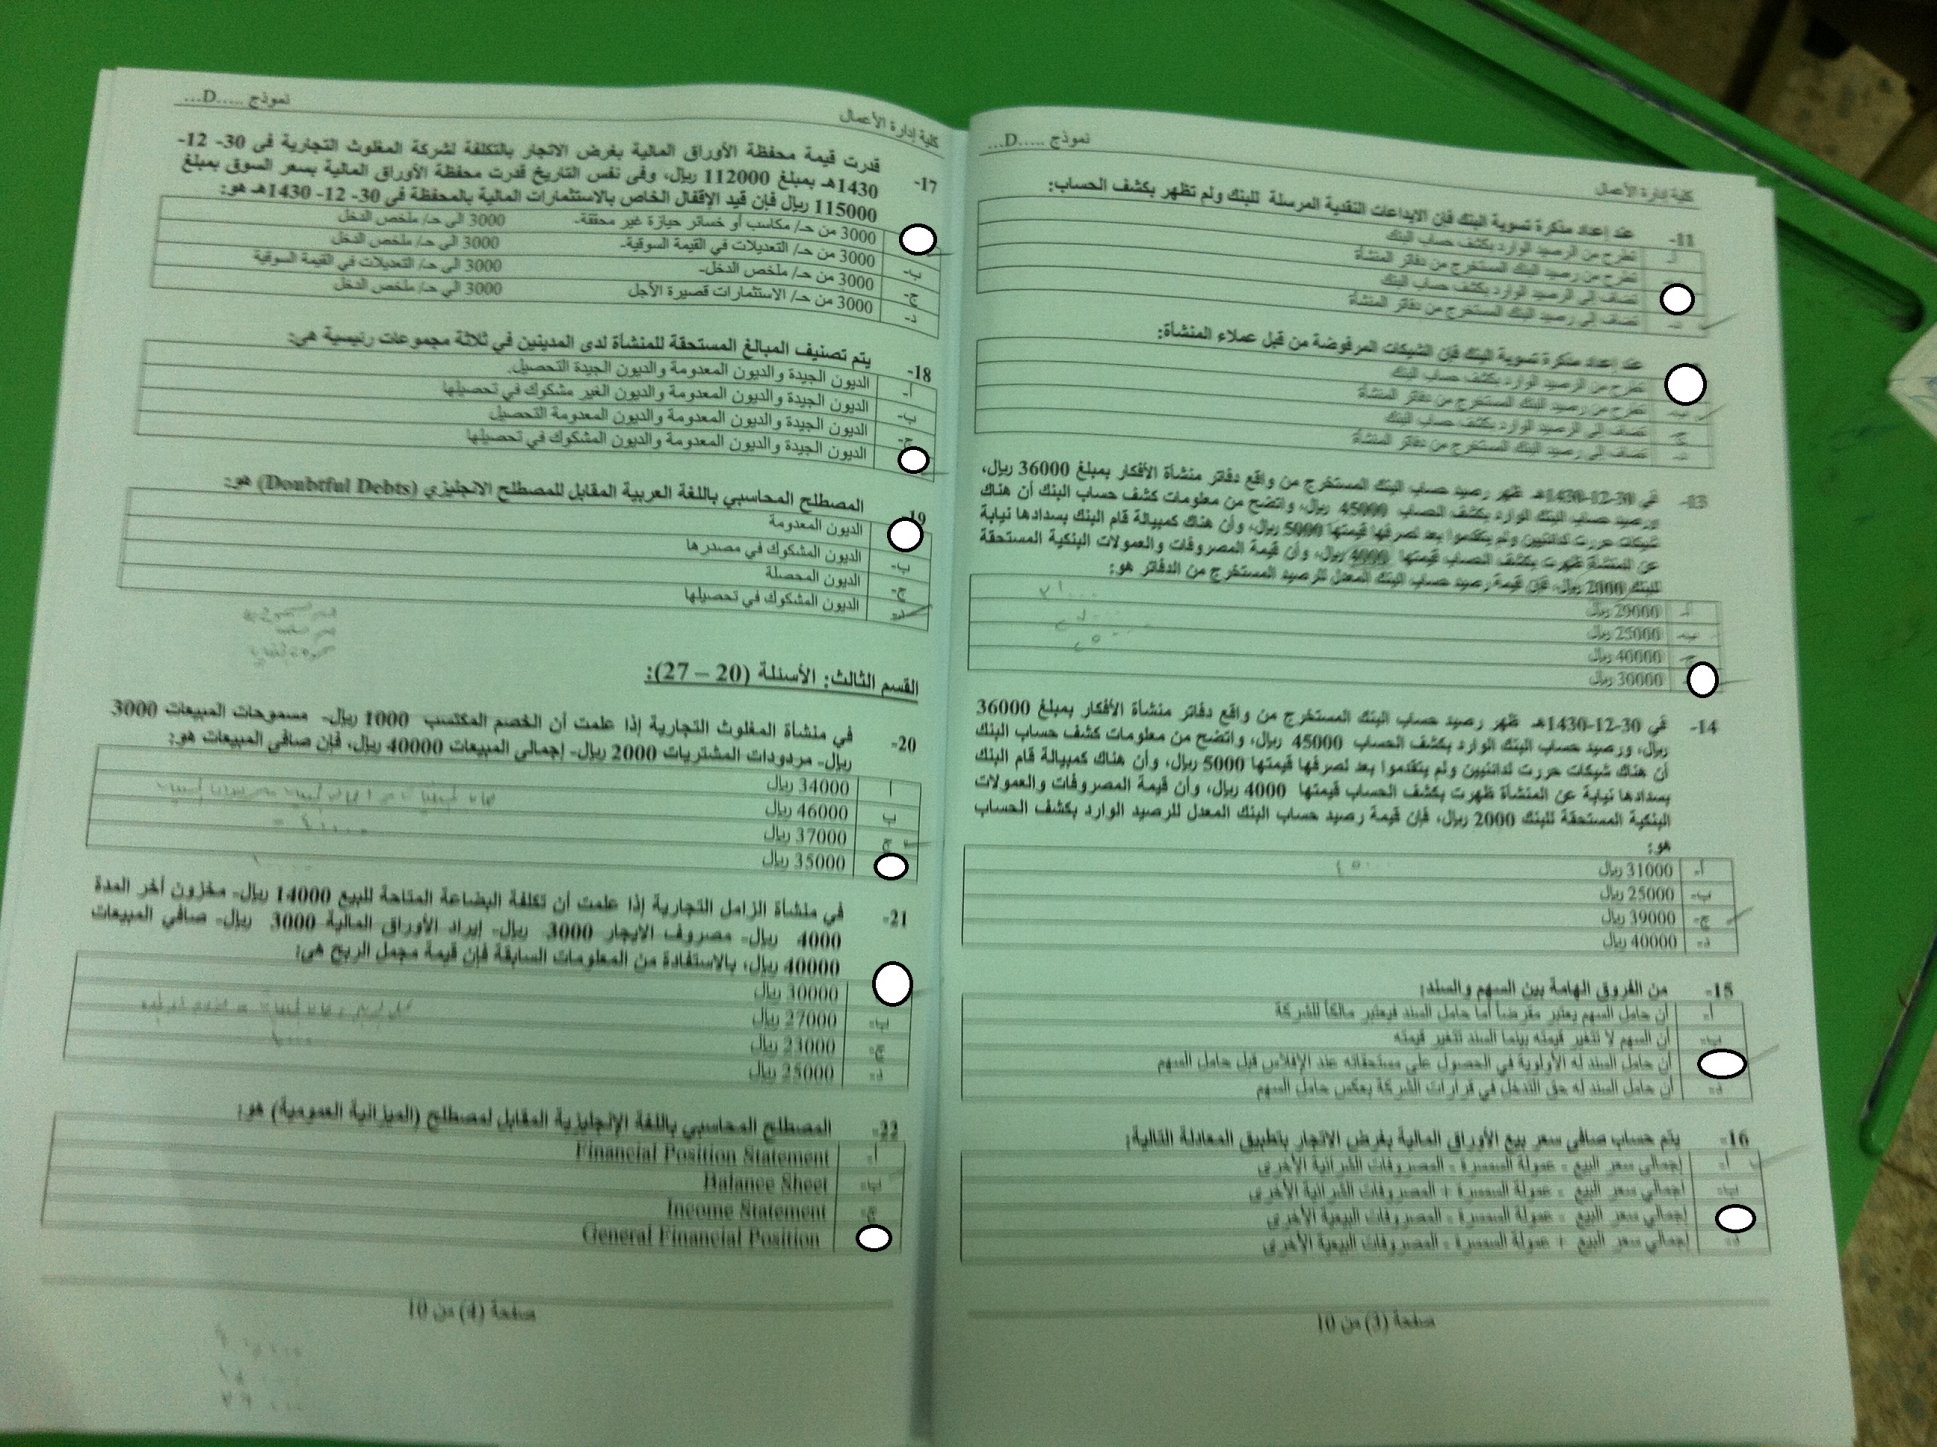 نموذج .....D...
كلية إدارة الأعمال
11- عند إعداد مذكرة تسوية البنك فإن الايداعات النقدية المرسلة للبنك ولم تظهر بكشف الحساب:
أ- تطرح من الرصيد الوارد بكشف حساب البنك
تطرح من رصيد البنك المستخرج من دفاتر المنشأة
تضاف الى الرصيد الوارد بكشف حساب البنك
د- تضاف الى رصيد البنك المستخرج من دفاتر المنشأة
عند إعداد مذكرة تسوية البنك فإن الشيكات المرفوضة من قبل عملاء المنشأة:
تطرح من الرصيد الوارد بكشف حساب البنك
ب- تطرح من رصيد البنك المستخرج من دفاتر المنشأة
ج- تضاف الى الرصيد الوارد بكشف حساب البنك
د- تضاف الى رصيد البنك المستخرج من دفاتر المنشأة
13- في 30-12-1430هـ ظهر رصيد حساب البنك المستخرج من واقع دفاتر منشأة الأفكار بمبلغ 36000 ريال،
ورصيد حساب البنك الوارد بكشف الحساب 45000 ريال، واتضح من معلومات كشف حساب البنك أن هناك
شيكات حررت لدائنيين ولم يتقدموا بعد لصرفها قيمتها 5000 ريال، وأن هناك كمبيالة قام البنك بسدادها نيابة
عن المنشأة ظهرت بكشف الحساب قيمتها 4000 ريال، وأن قيمة المصروفات والعمولات البنكية المستحقة
للبنك 2000 ريال، فإن قيمة رصيد حساب البنك المعدل للرصيد المستخرج من الدفاتر هو:
أ- 29000 ريال
ب- 25000 ريال
ج- 40000 ريال
30000 ريال
14- في 30-12-1430هـ ظهر رصيد حساب البنك المستخرج من واقع دفاتر منشأة الأفكار بمبلغ 36000
ريال، ورصيد حساب البنك الوارد بكشف الحساب 45000 ريال، واتضح من معلومات كشف حساب البنك
أن هناك شيكات حررت لدائنيين ولم يتقدموا بعد لصرفها قيمتها 5000 ريال، وأن هناك كمبيالة قام البنك
بسدادها نيابة عن المنشأة ظهرت بكشف الحساب قيمتها 4000 ريال، وأن قيمة المصروفات والعمولات
البنكية المستحقة للبنك 2000 ريال، فإن قيمة رصيد حساب البنك المعدل للرصيد الوارد بكشف الحساب
هو:
أ- 31000 ريال
ب- 25000 ريال
ج- 39000 ريال
د- 40000 ريال
15- من الفروق الهامة بين السهم والسند:
أ- أن حامل السهم يعتبر مقرضاً أما حامل السند فيعتبر مالكاً للشركة
ب- أن السهم لا تتغير قيمته بينما السند تتغير قيمته
أن حامل السند له الأولوية في الحصول على مستحقاته عند الإفلاس قبل حامل السهم
د- أن حامل السند له حق التدخل في قرارات الشركة بعكس حامل السهم
16- يتم حساب صافى سعر بيع الأوراق المالية بغرض الاتجار بتطبيق المعادلة التالية:
أ- إجمالي سعر البيع - عمولة السمسرة - المصروفات الشرائية الأخرى
ب- إجمالي سعر البيع - عمولة السمسرة + المصروفات الشرائية الأخرى
إجمالي سعر البيع - عمولة السمسرة - المصروفات البيعية الأخرى
د- إجمالي سعر البيع + عمولة السمسرة - المصروفات البيعية الأخرى
صفحة (3) من 10
نموذج .....D...
كلية إدارة الأعمال
17- قدرت قيمة محفظة الأوراق المالية بغرض الاتجار بالتكلفة لشركة المغلوث التجارية فى 30- 12-
1430هـ بمبلغ 112000 ريال، وفى نفس التاريخ قدرت محفظة الأوراق المالية بسعر السوق بمبلغ
115000 ريال فإن قيد الإقفال الخاص بالاستثمارات المالية بالمحفظة فى 30- 12- 1430هـ هو:
3000 من حـ/ مكاسب أو خسائر حيازة غير محققة- 3000 الى حـ/ ملخص الدخل
ب- 3000 من حـ/ التعديلات في القيمة السوقية- 3000 الى حـ/ ملخص الدخل
ج- 3000 من حـ/ ملخص الدخل- 3000 الى حـ/ التعديلات في القيمة السوقية
د- 3000 من حـ/ الاستثمارات قصيرة الأجل 3000 الى حـ/ ملخص الدخل
18- يتم تصنيف المبالغ المستحقة للمنشأة لدى المدينين في ثلاثة مجموعات رئيسية هي:
أ- الديون الجيدة والديون المعدومة والديون الجيدة التحصيل.
ب- الديون الجيدة والديون المعدومة والديون الغير مشكوك في تحصيلها
ج- الديون الجيدة والديون المعدومة والديون المعدومة التحصيل
الديون الجيدة والديون المعدومة والديون المشكوك في تحصيلها
19- المصطلح المحاسبي باللغة العربية المقابل للمصطلح الانجليزي (Doubtful Debts) هو:
الديون المعدومة
ب- الديون المشكوك في مصدرها
ج- الديون المحصلة
د- الديون المشكوك في تحصيلها
القسم الثالث: الأسئلة (20 – 27):
20- في منشأة المغلوث التجارية إذا علمت أن الخصم المكتسب 1000 ريال- مسموحات المبيعات 3000
ريال- مردودات المشتريات 2000 ريال- إجمالى المبيعات 40000 ريال، فإن صافي المبيعات هو:
أ 34000 ريال
ب 46000 ريال
ج 37000 ريال
35000 ريال
21- في منشأة الزامل التجارية إذا علمت أن تكلفة البضاعة المتاحة للبيع 14000 ريال- مخزون أخر المدة
4000 ريال- مصروف الايجار 3000 ريال- إيراد الأوراق المالية 3000 ريال- صافي المبيعات
40000 ريال، بالاستفادة من المعلومات السابقة فإن قيمة مجمل الربح هى:
30000 ريال
ب- 27000 ريال
ج- 23000 ريال
د- 25000 ريال
22- المصطلح المحاسبي باللغة الإنجليزية المقابل لمصطلح (الميزانية العمومية) هو:
أ- Financial Position Statement
ب- Balance Sheet
ج- Income Statement
General Financial Position
صفحة (4) من 10